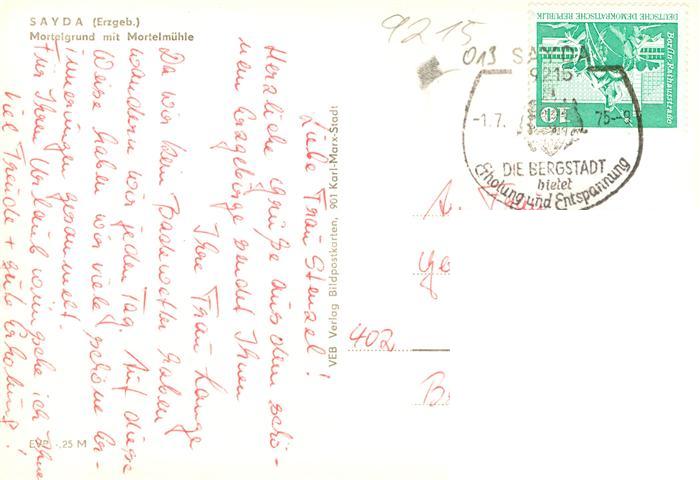 SAYDA (Erzgeb.)
Mortelgrund mit Mortelmühle
Liebe Frau Stenzel!
Herzliche Grüße aus dem schö-
nen Erzgebirge sendet Ihnen
Ihre Frau Lange
Da wir kein Badewetter haben
wandern wir jeden Tag. Auf diese
Weise haben wir viele schöne Er-
innerungen gesammelt.
Für Ihren Urlaub wünsche ich Ihnen
viel Freude + gute Erholung!
EVP -.25 M
VEB Verlag Bildpostkarten, 901 Karl-Marx-Stadt
9215
013 SAYDA
9215
-1.7. 75--8
DIE BERGSTADT
bietet
Erholung und Entspannung
DEUTSCHE DEMOKRATISCHE REPUBLIK
Berlin-Rathausstraße
10
A.
402